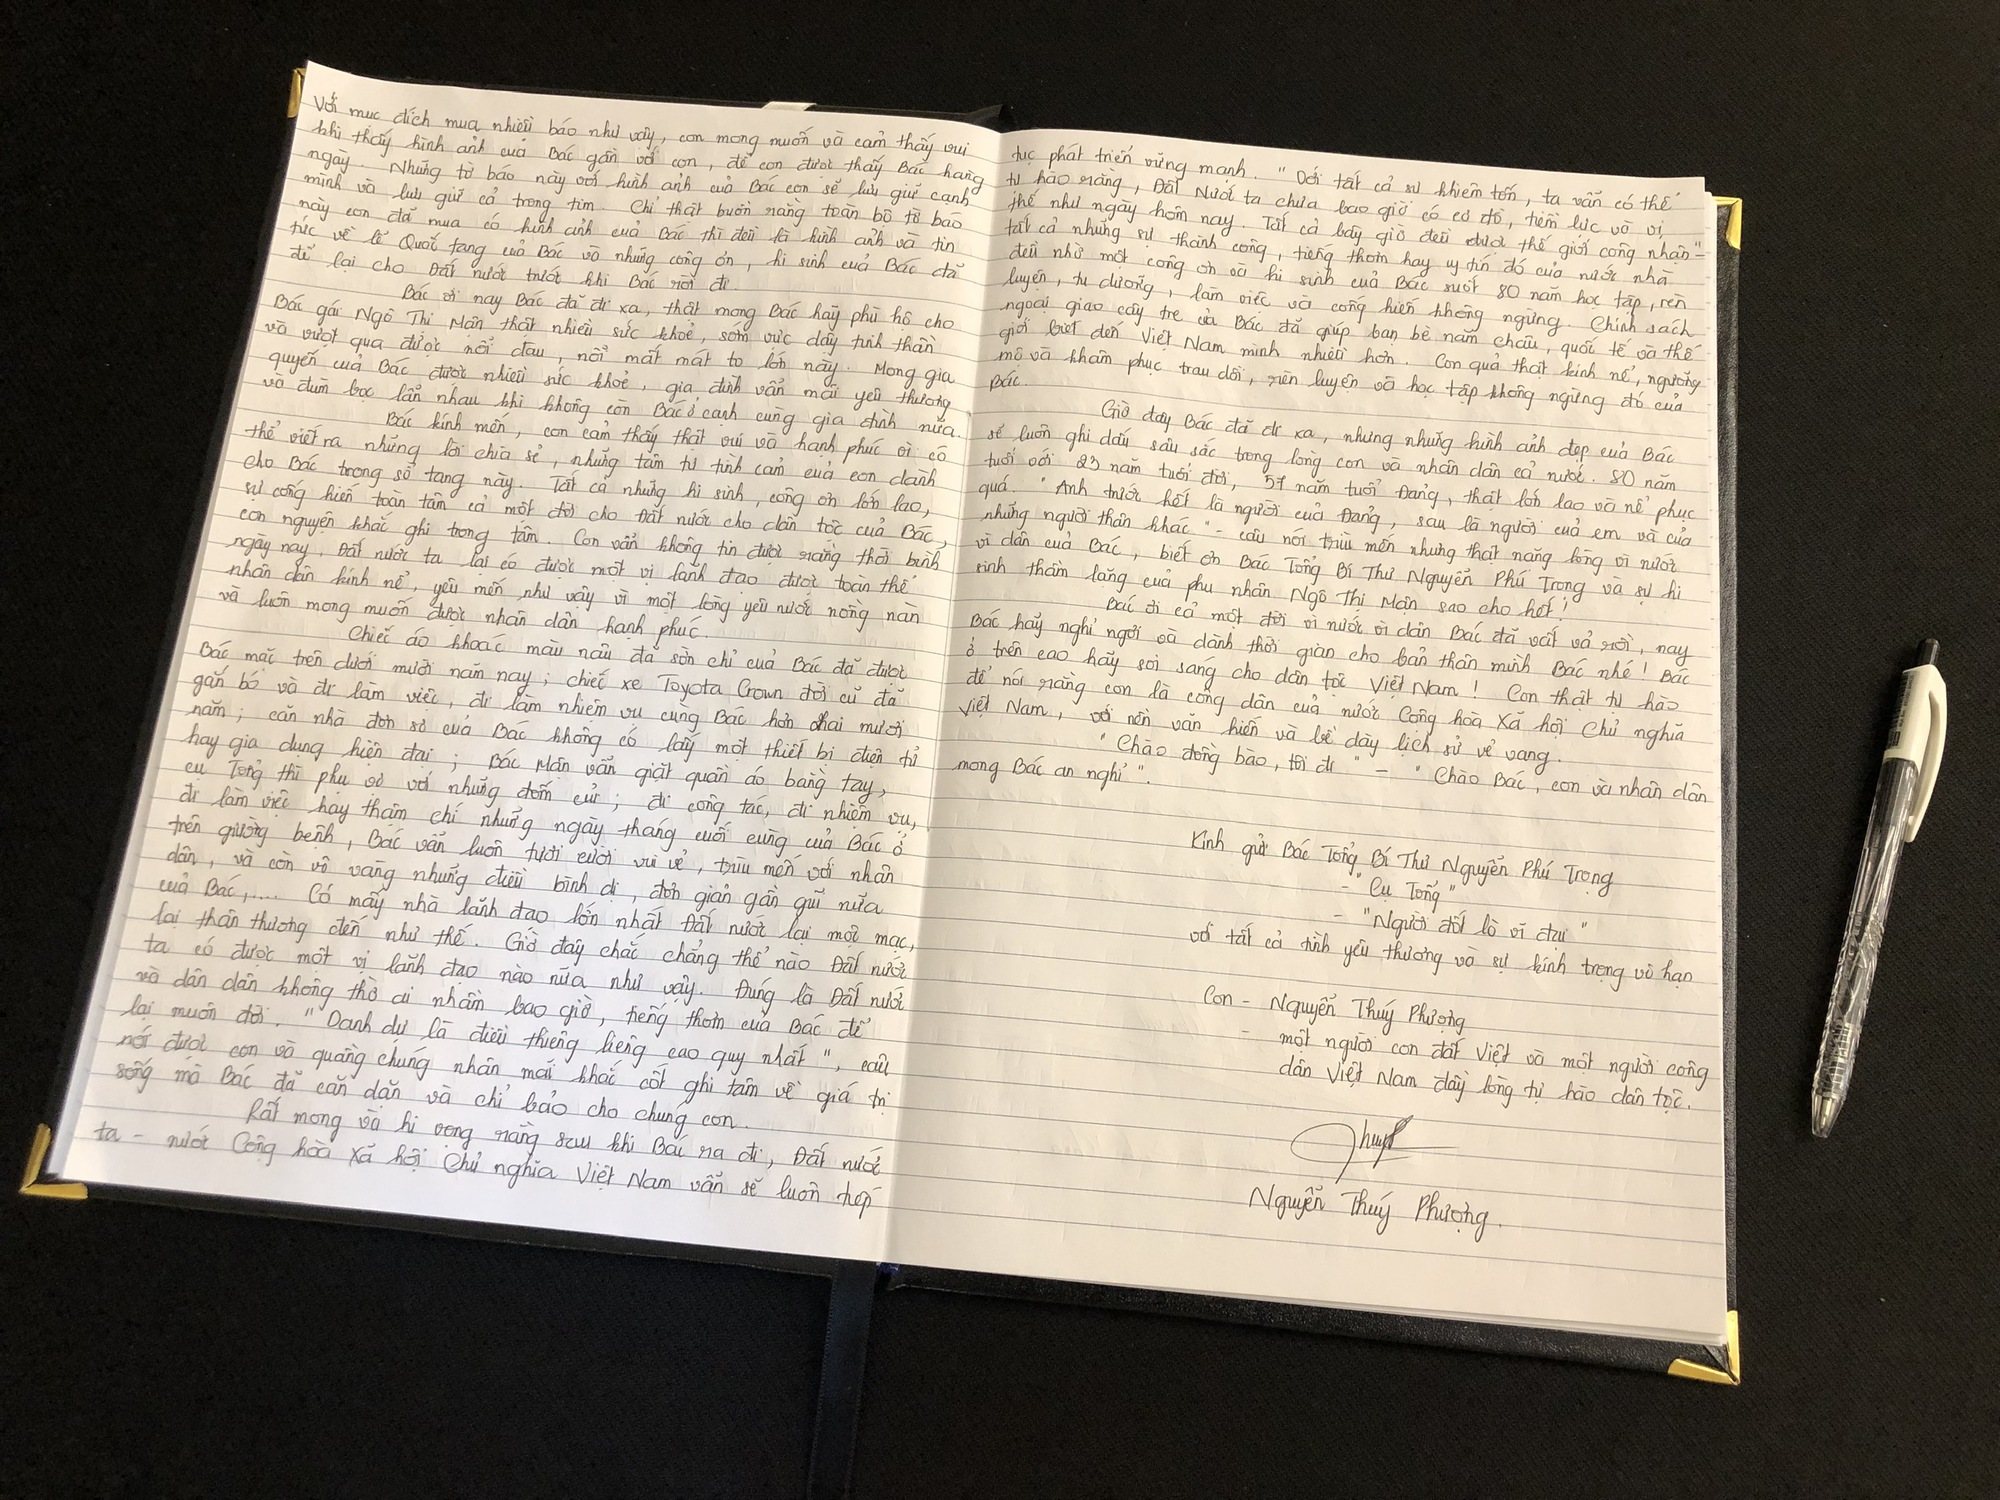 Với mục đích mua nhiều báo như vậy, con mong muốn và cảm thấy vui
khi thấy hình ảnh của Bác gần với con, để con được thấy Bác hàng
ngày. Những tờ báo này với hình ảnh của Bác con sẽ lưu giữ cạnh
mình và lưu giữ cả trong tim. Chỉ thật buồn rằng toàn bộ tờ báo
này con đã mua có hình ảnh của Bác thì đều là hình ảnh và tin
tức về lễ Quốc tang của Bác và những công ơn, hi sinh của Bác đã
để lại cho Đất nước trước khi Bác rời đi.
Bác ơi nay Bác đã đi xa, thật mong Bác hãy phù hộ cho
Bác gái Ngô Thị Mân thật nhiều sức khoẻ, sớm vực dậy tinh thần
và vượt qua được nỗi đau, nỗi mất mát to lớn này. Mong gia
quyến của Bác được nhiều sức khoẻ, gia đình vẫn mãi yêu thương
và đùm bọc lẫn nhau khi không còn Bác ở cạnh cùng gia đình nữa.
Bác kính mến, con cảm thấy thật vui và hạnh phúc vì có
thể viết ra những lời chia sẻ, những tâm tư tình cảm của con dành
cho Bác trong sổ tang này. Tất cả những hi sinh, công ơn lớn lao,
sự cống hiến toàn tâm cả một đời cho Đất nước cho dân tộc của Bác,
con nguyện khắc ghi trong tâm. Con vẫn không tin được rằng thời bình
ngày nay, Đất nước ta lại có được một vị lãnh đạo được toàn thể
nhân dân kính nể, yêu mến như vậy vì một lòng yêu nước nồng nàn
và luôn mong muốn được nhân dân hạnh phúc.
Chiếc áo khoác màu nâu đã sờn chỉ của Bác đã được
Bác mặc trên dưới mười năm nay; chiếc xe Toyota Crown đời cũ đã
gắn bó và đi làm việc, đi làm nhiệm vụ cùng Bác hơn hai mươi
năm; căn nhà đơn sơ của Bác không có lấy một thiết bị điện tử
hay gia dụng hiện đại; Bác Mân vẫn giặt quần áo bằng tay,
cụ Tổng thì phụ với những đốm củi; đi công tác, đi nhiệm vụ,
đi làm việc hay thậm chí những ngày tháng cuối cùng của Bác ở
trên giường bệnh, Bác vẫn luôn tươi cười vui vẻ, trìu mến với nhân
dân, và còn vô vàng những điều bình dị, đơn giản gần gũi nữa
của Bác,.... Có mấy nhà lãnh đạo lớn nhất Đất nước lại mộc mạc,
lại thân thương đến như thế. Giờ đây chắc chẳng thể nào Đất nước
ta có được một vị lãnh đạo nào nữa như vậy. Đúng là Đất nước
và dân dân không thờ ai nhầm bao giờ, tiếng thơm của Bác để
lại muôn đời. "Danh dự là điều thiêng liêng cao quý nhất", câu
nói được con và quảng chúng nhân mãi khắc cốt ghi tâm về giá trị
sống mà Bác đã căn dặn và chỉ bảo cho chúng con.
Rất mong và hi vọng rằng sau khi Bác ra đi, Đất nước
ta - nước Cộng hoà Xã hội Chủ nghĩa Việt Nam vẫn sẽ luôn tiếp
tục phát triển vững mạnh. "Với tất cả sự khiêm tốn, ta vẫn có thể
tự hào rằng, Đất Nước ta chưa bao giờ có cơ đồ, tiềm lực và vị
thế như ngày hôm nay. Tất cả bây giờ đều được thế giới công nhận" -
tất cả những sự thành công, tiếng thơm hay uy tín đó của nước nhà
đều nhờ một công ơn và hi sinh của Bác suốt 80 năm học tập, rèn
luyện, tu dưỡng, làm việc và cống hiến không ngừng. Chính sách
ngoại giao cây tre của Bác đã giúp bạn bè năm châu, quốc tế và thế
giới biết đến Việt Nam mình nhiều hơn. Con quả thật kính nể, ngưỡng
mộ và khâm phục trau dồi, rèn luyện và học tập không ngừng đó của
Bác.
Giờ đây Bác đã đi xa, nhưng những hình ảnh đẹp của Bác
sẽ luôn ghi dấu sâu sắc trong lòng con và nhân dân cả nước. 80 năm
tuổi với 23 năm tuổi đời, 57 năm tuổi Đảng, thật lớn lao và nể phục
quá. "Anh trước hết là người của Đảng, sau là người của em và của
những người thân khác" - câu nói trìu mến nhưng thật nặng lòng vì nước
vì dân của Bác, biết ơn Bác Tổng Bí Thư Nguyễn Phú Trọng và sự hi
sinh thầm lặng của phu nhân Ngô Thị Mận sao cho hết!
Bác ơi cả một đời vì nước vì dân Bác đã vất vả rồi, nay
Bác hãy nghỉ ngơi và dành thời gian cho bản thân mình Bác nhé! Bác
ở trên cao hãy soi sáng cho dân tộc Việt Nam! Con thật tự hào
để nói rằng con là công dân của nước Cộng hoà Xã hội Chủ nghĩa
Việt Nam, với nền văn hiến và bề dày lịch sử vẻ vang.
"Chào đồng bào, tôi đi" - "Chào Bác, con và nhân dân
mong Bác an nghỉ".
Kính gửi Bác Tổng Bí Thư Nguyễn Phú Trọng
- "Cụ Tổng"
- "Người đốt lò vĩ đại"
với tất cả tình yêu thương và sự kính trọng vô hạn
Con - Nguyễn Thuý Phượng
- một người con đất Việt và một người công
dân Việt Nam đầy lòng tự hào dân tộc.
Nguyễn Thuý Phượng.